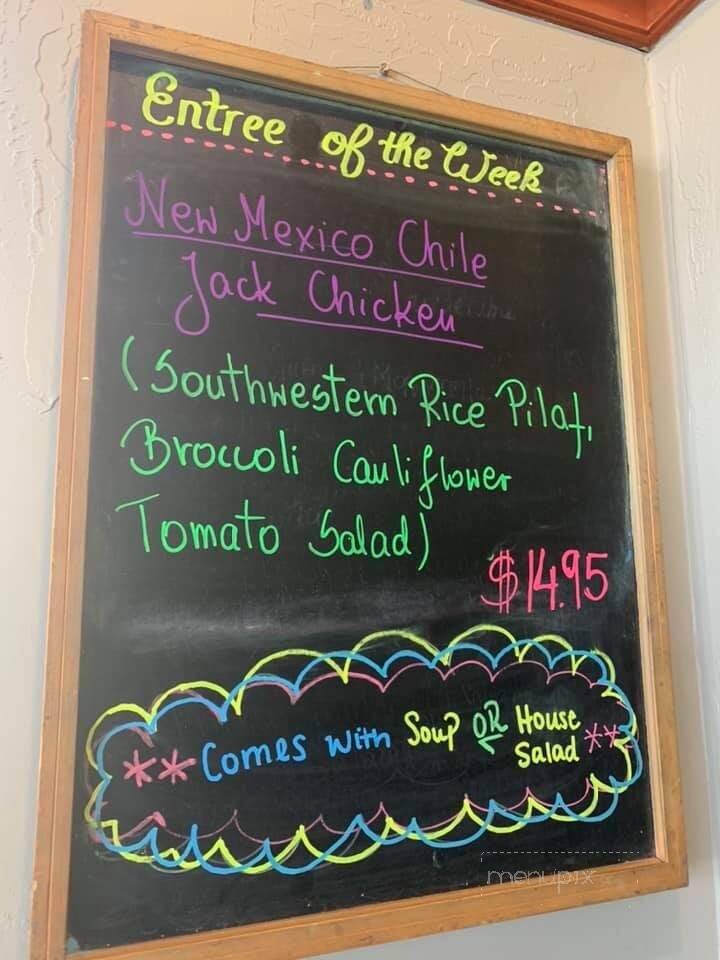 Entree of the Week
New Mexico Chile
Jack Chicken
(Southwestern Rice Pilaf,
Broccoli Cauliflower
Tomato Salad)
$14.95
**Comes with Soup OR House Salad**
menupix